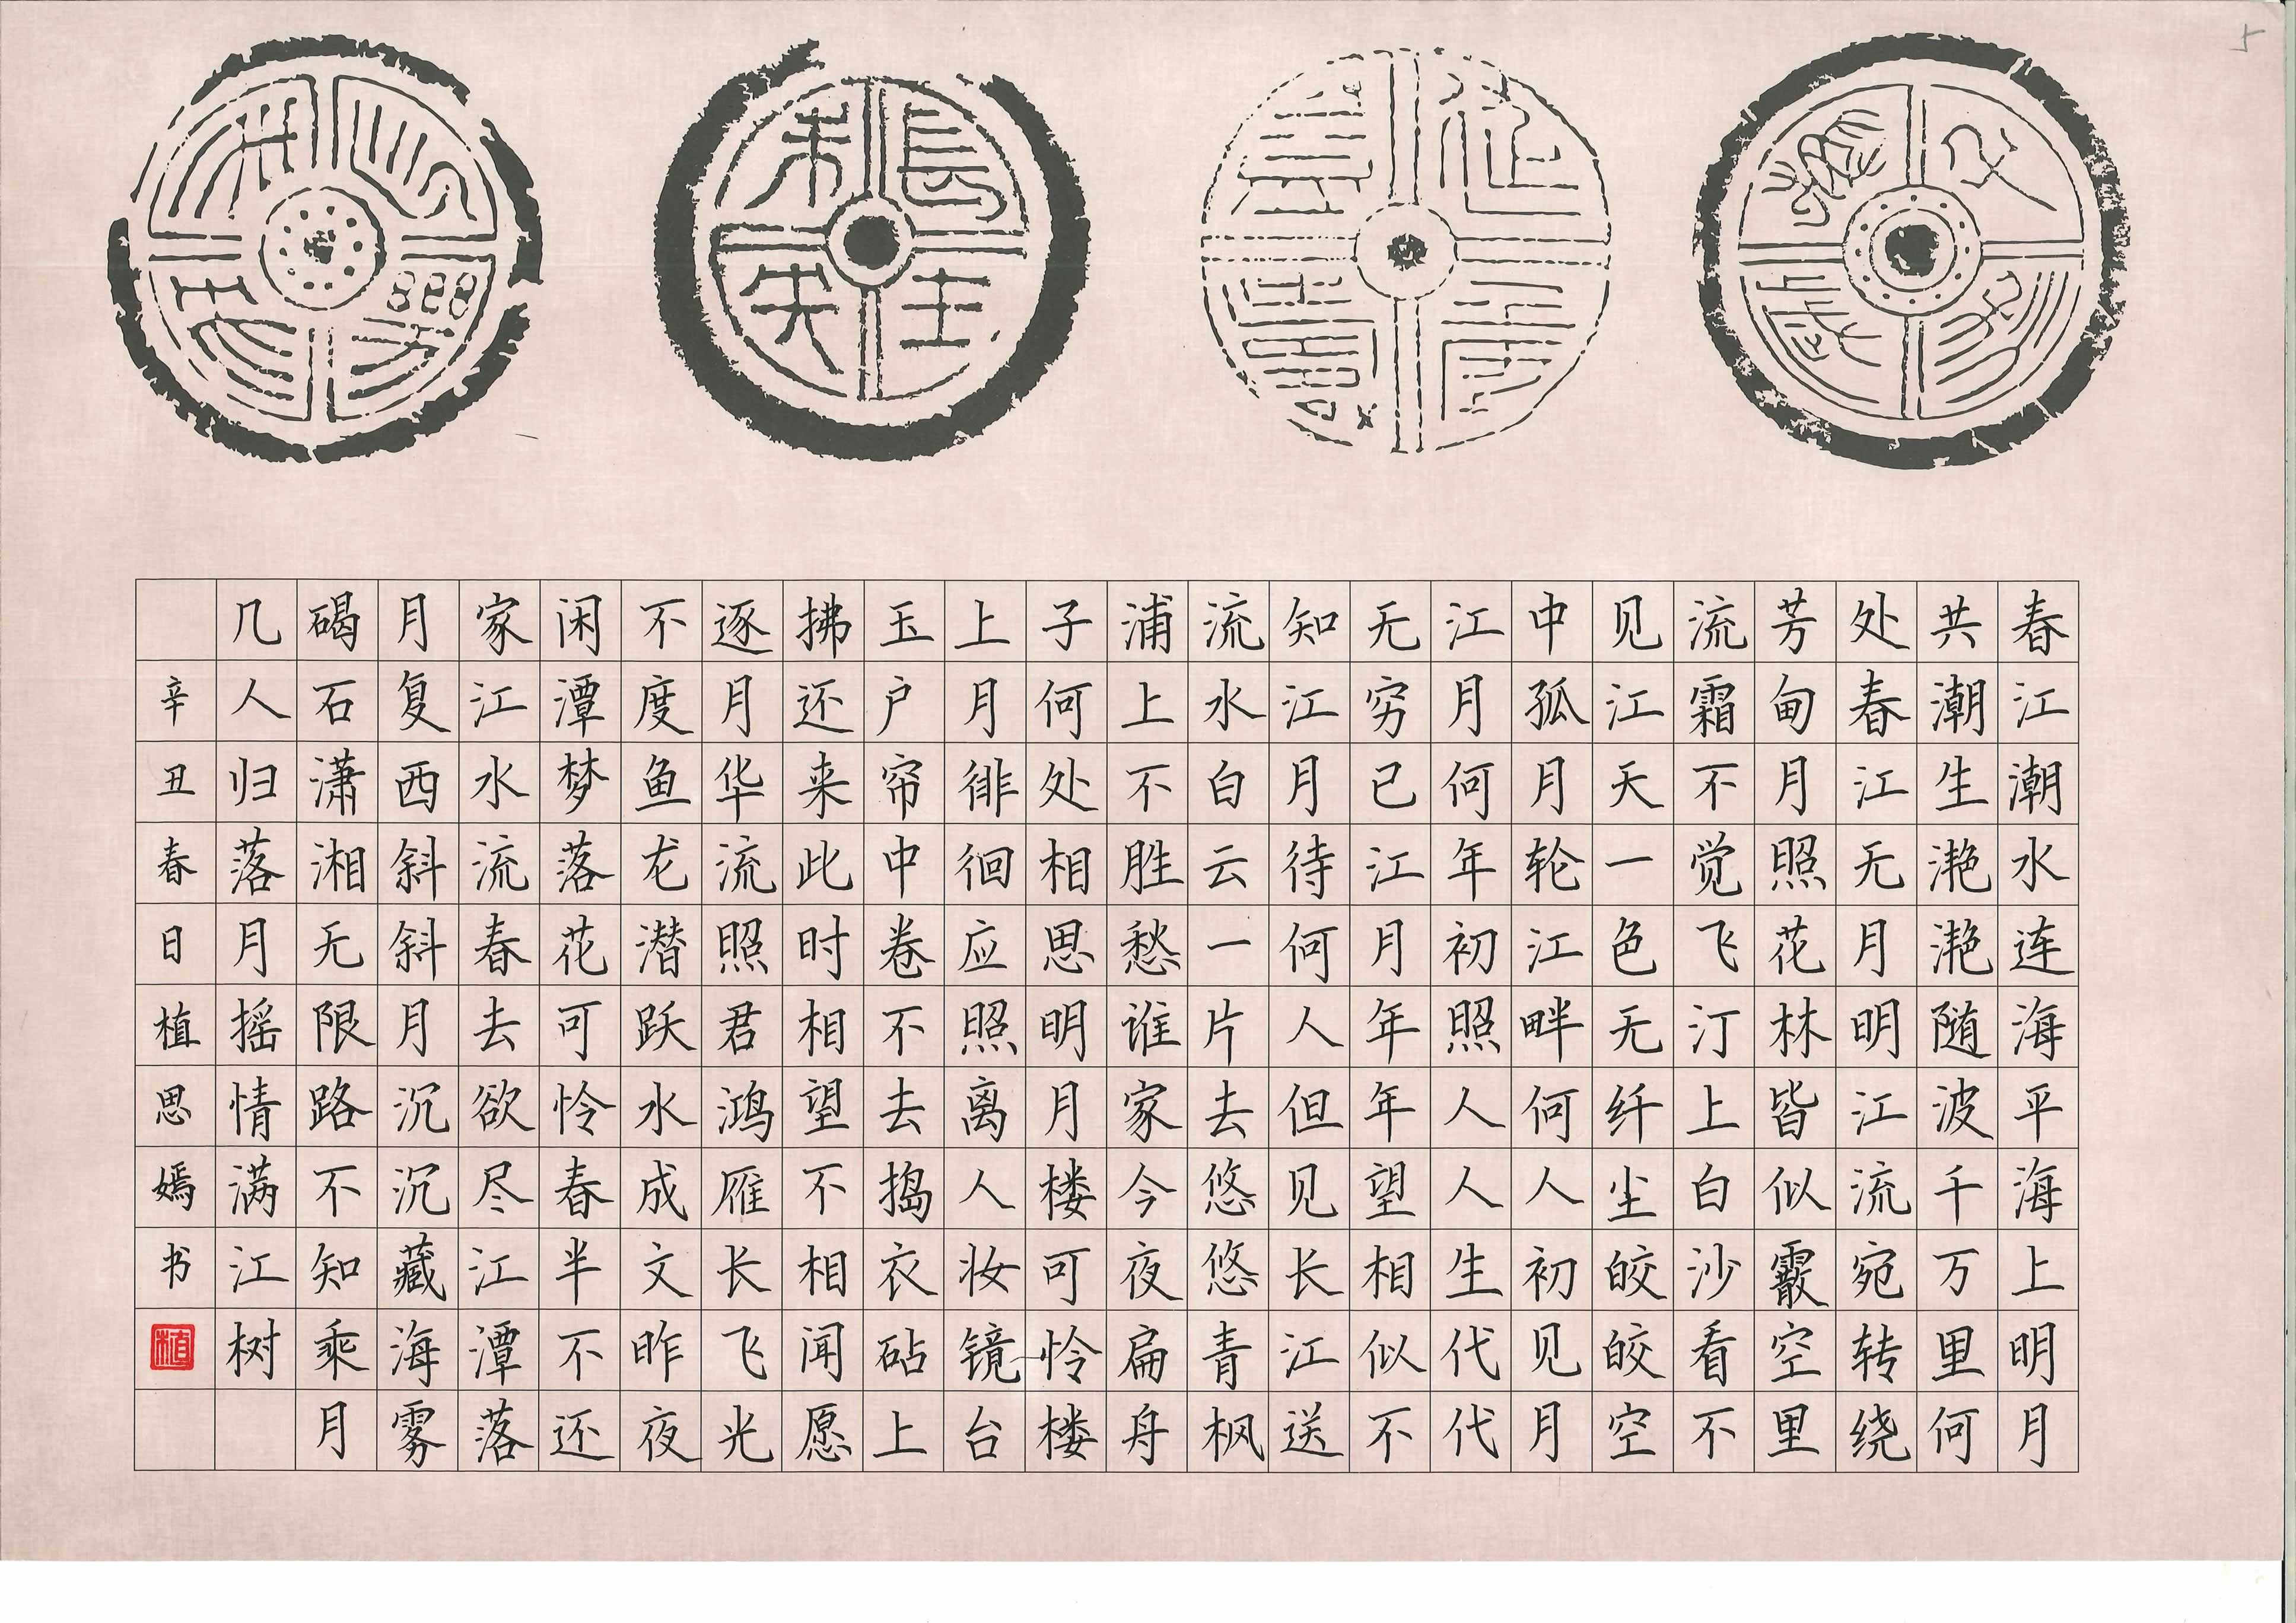 長生未央
春江潮水连海平海上明月
共潮生滟滟随波千万里何
处春江无月明江流宛转绕
芳甸月照花林皆似霰空里
流霜不觉飞汀上白沙看不
见江天一色无纤尘皎皎空
中孤月轮江畔何人初见月
江月何年初照人人生代代
无穷已江月年年望相似不
知江月待何人但见长江送
流水白云一片去悠悠青枫
浦上不胜愁谁家今夜扁舟
子何处相思明月楼可怜楼
上月徘徊应照离人妆镜台
玉户帘中卷不去捣衣砧上
拂还来此时相望不相闻愿
逐月华流照君鸿雁长飞光
不度鱼龙潜跃水成文昨夜
闲潭梦落花可怜春半不还
家江水流春去欲尽江潭落
月复西斜斜月沉沉藏海雾
碣石潇湘无限路不知乘月
几人归落月摇情满江树
辛丑春日植思嫣书
植